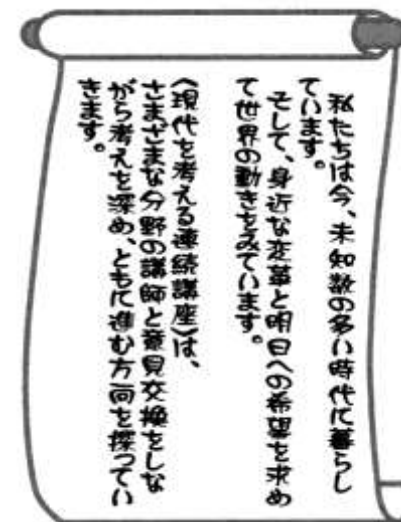 私たちは今、未知数の多い時代に暮らし
ています。
そして、身近な変革と明日への希望を求め
て世界の動きをみています。
〈現代を考える連続講座〉は、
さまざまな分野の講師と意見交換をしな
がら考えを深め、ともに進む方向を探ってい
きます。